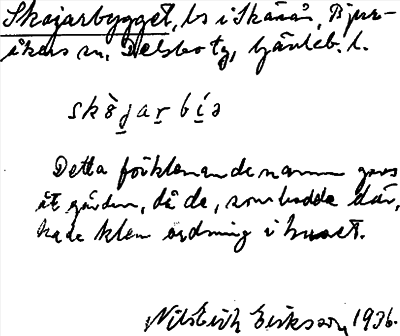 Skojarbygget, ls i Skåså, Bjur-
åkers sn, Delsbo tg, Gävleb. l.
skòjarbía
Detta förklenande namn gavs
åt gården, då de, som bodde där,
hade klen ordning i huset.
Nils Erik Eriksson, 1936.